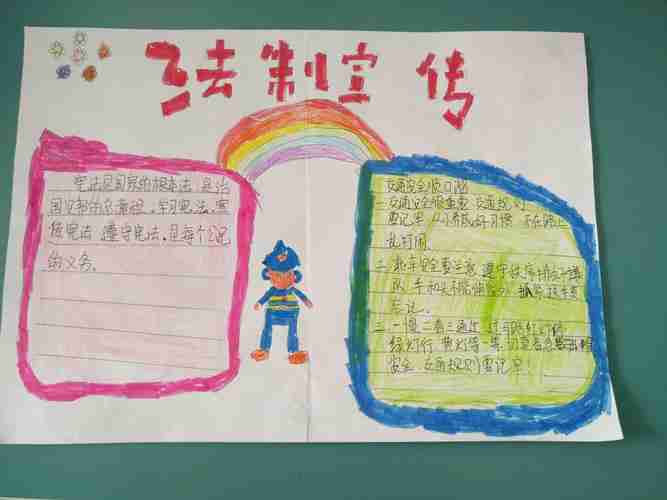 法制宣传
宪法是国家的根本法 是治
国安邦的总章程。学习宪法、宣
传宪法 遵守宪法、是每个公民
的义务。
交通安全顺口溜
一 交通安全很重要 交通规则
要记牢 从小养成好习惯 不在路上
乱打闹
二 乘车安全要注意 遵守秩序
手和头不能伸窗外
忘记。
三 一慢二看三通过
绿灯行 黄灯等一等
安全 交通规则要记牢！